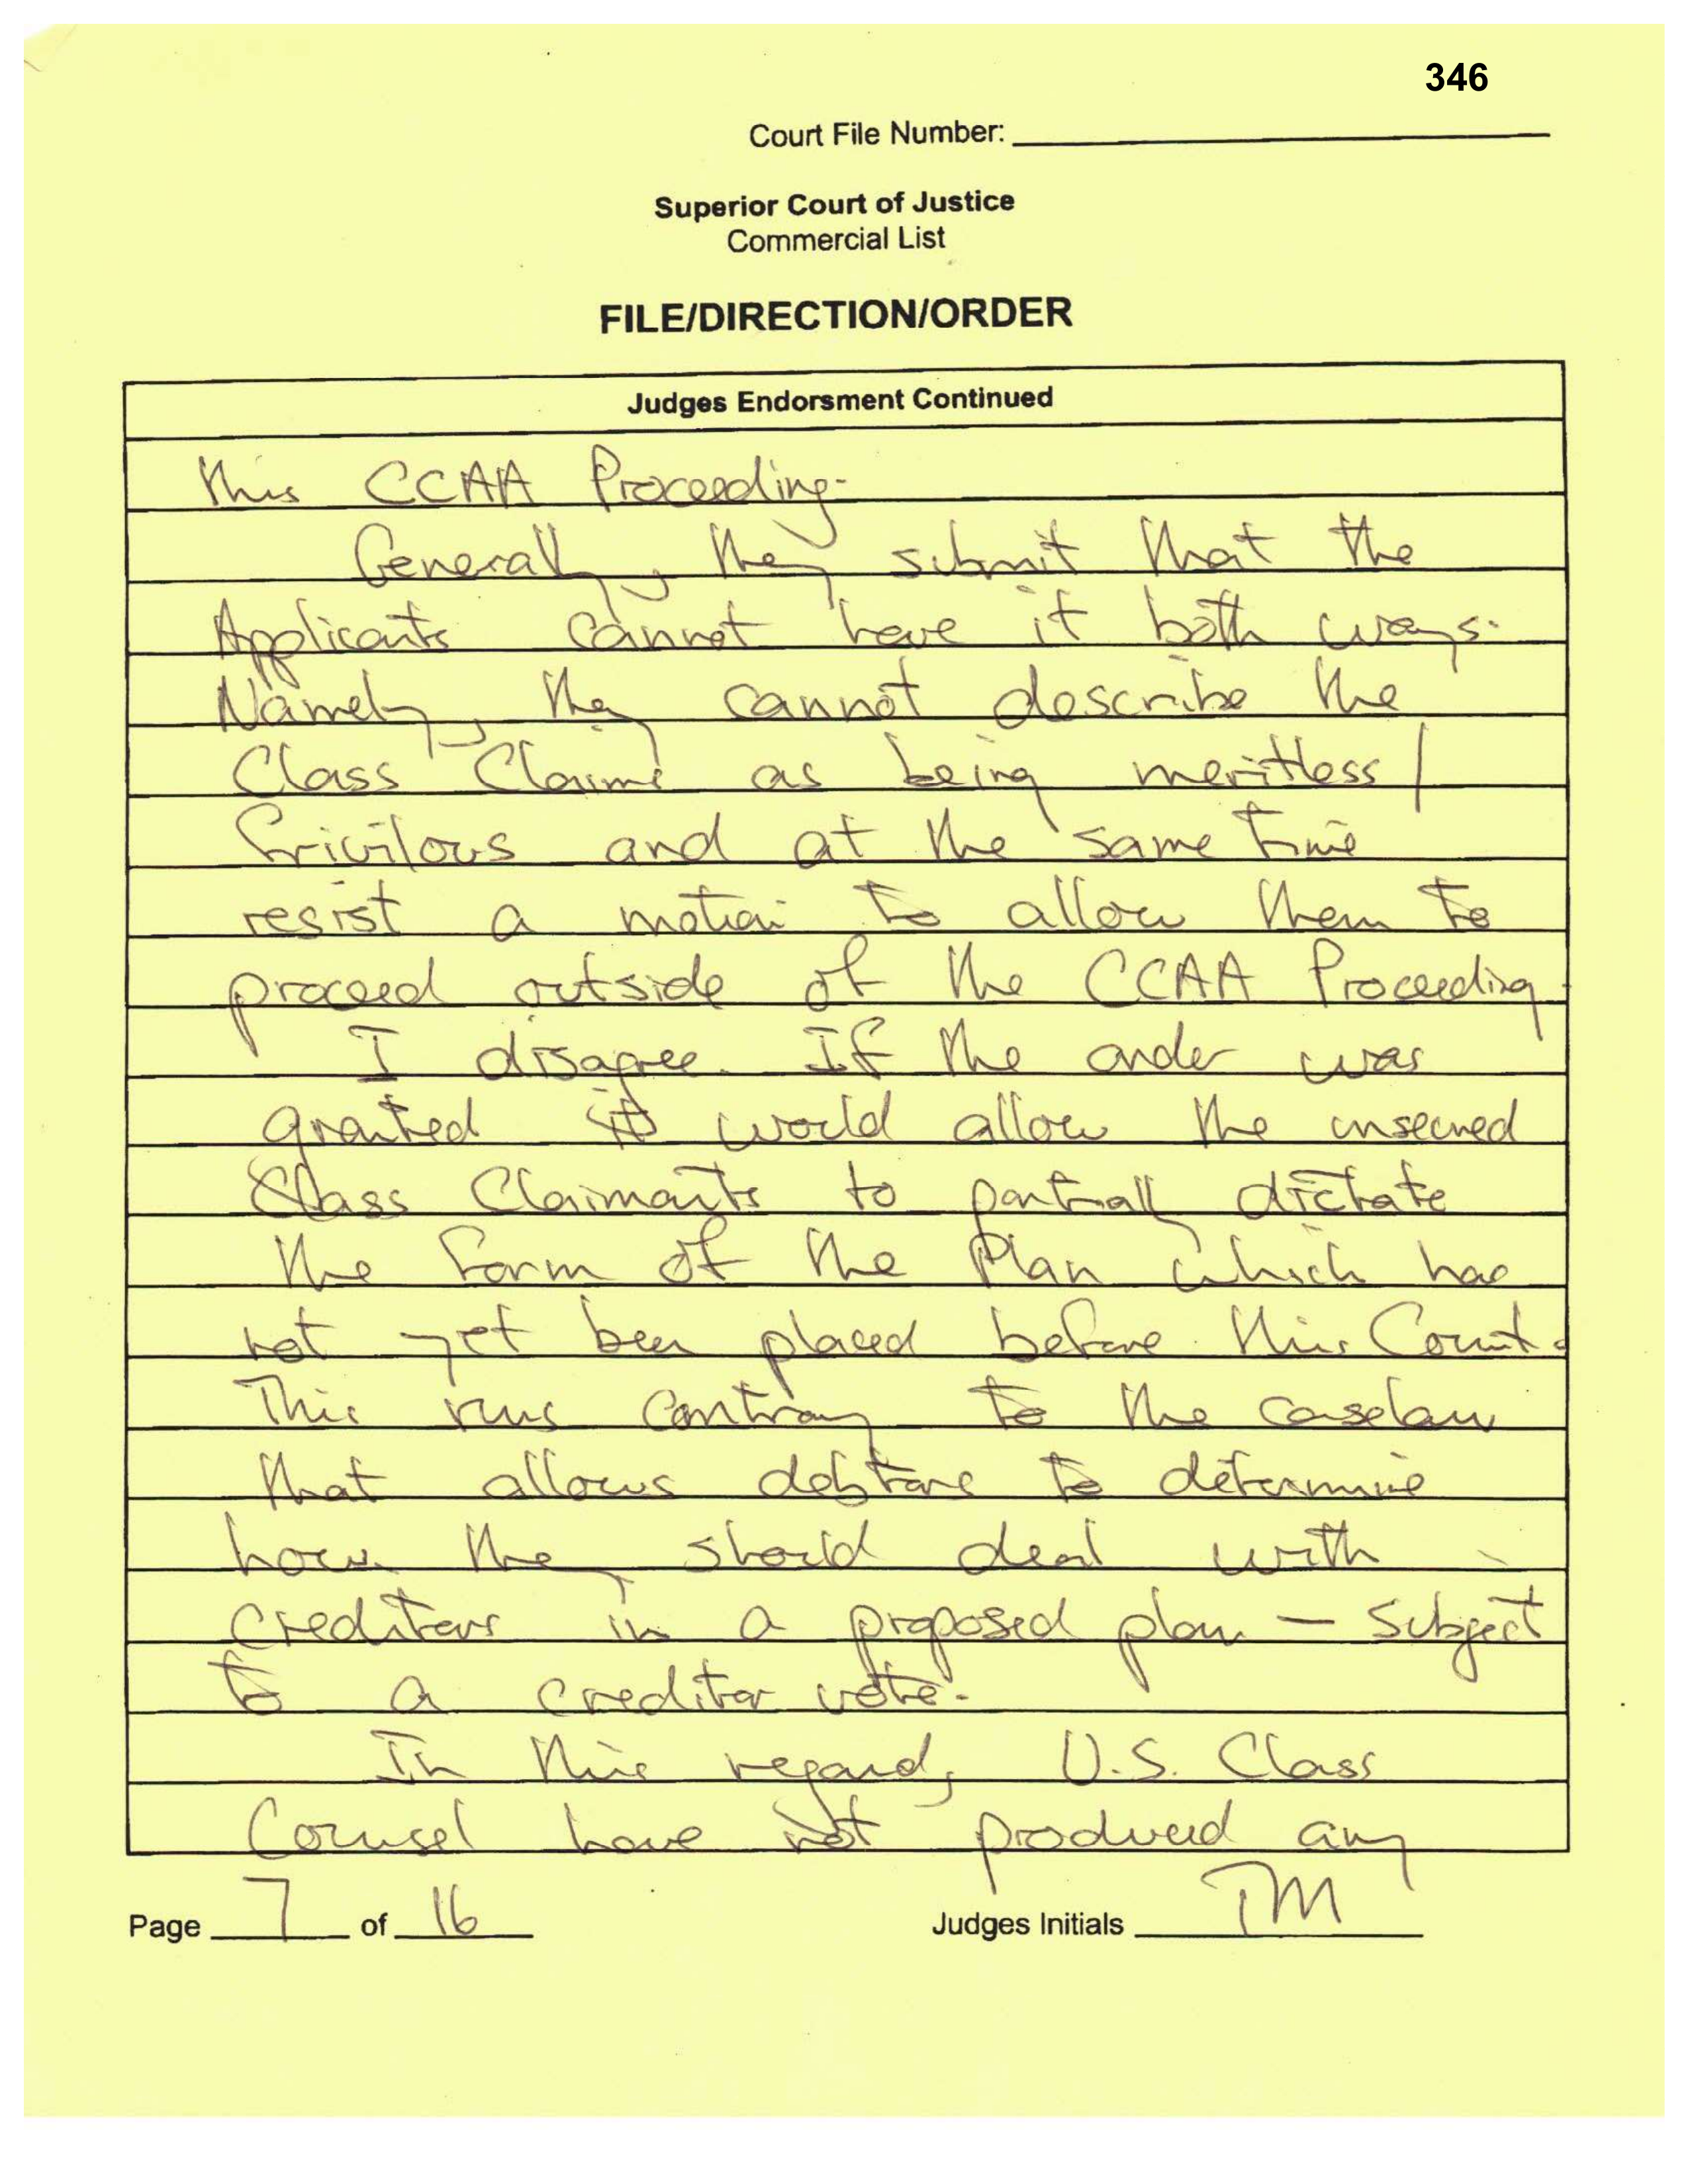 346
Court File Number:
Superior Court of Justice
Commercial List
FILE/DIRECTION/ORDER
Judges Endorsment Continued
this CCAA Proceeding.
Generally, they submit that the
Applicants cannot have it both ways.
Namely, they cannot describe the
Class Claims as being meritless/
frivilous and at the same time
resist a motion to allow them to
proceed outside of the CCAA Proceeding.
I disagree. If the order was
granted it would allow the unsecured
Class Claimants to partially dictate
the form of the Plan which has
not yet been placed before this Court.
This runs contrary to the caselaw
that allows debtors to determine
how they should deal with
creditors in a proposed plan – subject
to a creditor vote.
In this regard, U.S. Class
Counsel have not produced any
Page 7 of 16 Judges Initials TM